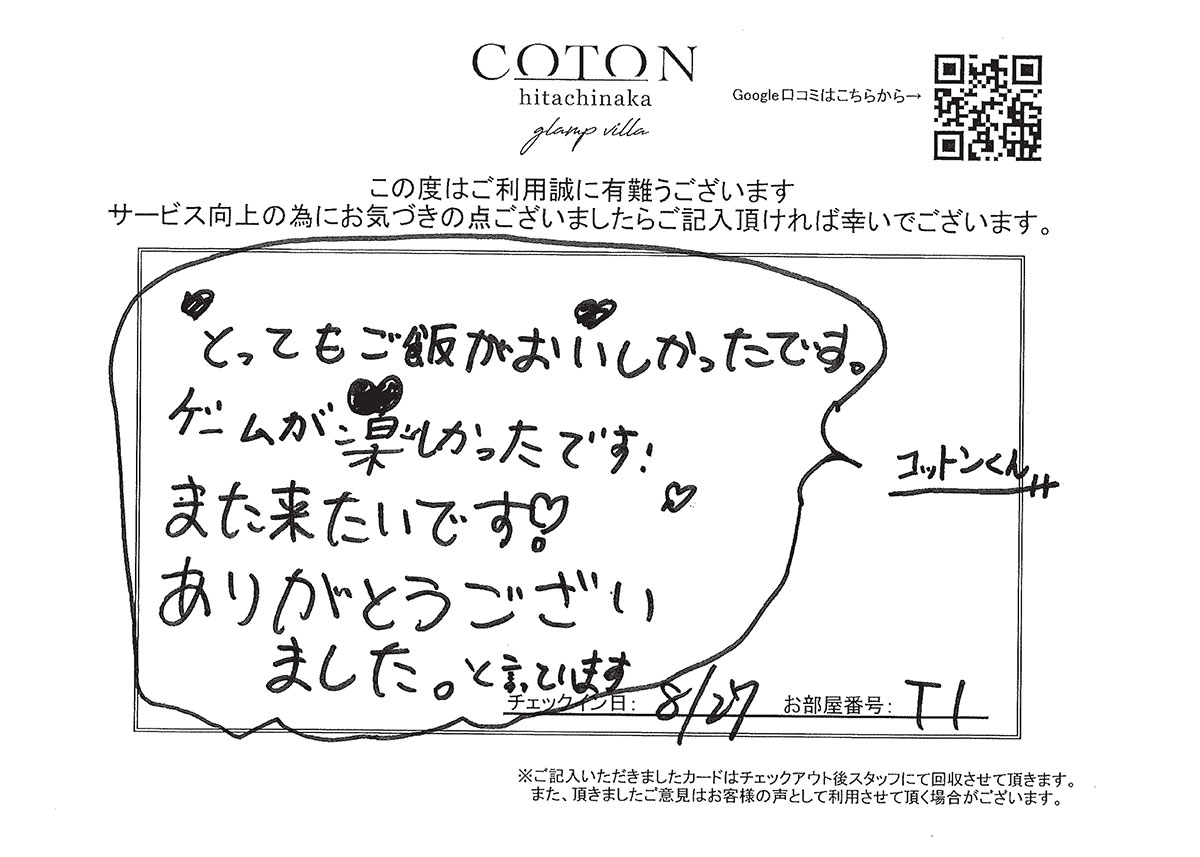 COTON
hitachinaka
glamp villa
Google口コミはこちらから→
この度はご利用誠に有難うございます
サービス向上の為にお気づきの点ございましたらご記入頂ければ幸いでございます。
とってもご飯がおいしかったです。
ゲームが楽しかったです!
また来たいです!
ありがとうござい
ました。と言っています
コットンくん
チェックイン日: 8/27 お部屋番号: T1
※ご記入いただきましたカードはチェックアウト後スタッフにて回収させて頂きます。
また、頂きましたご意見はお客様の声として利用させて頂く場合がございます。